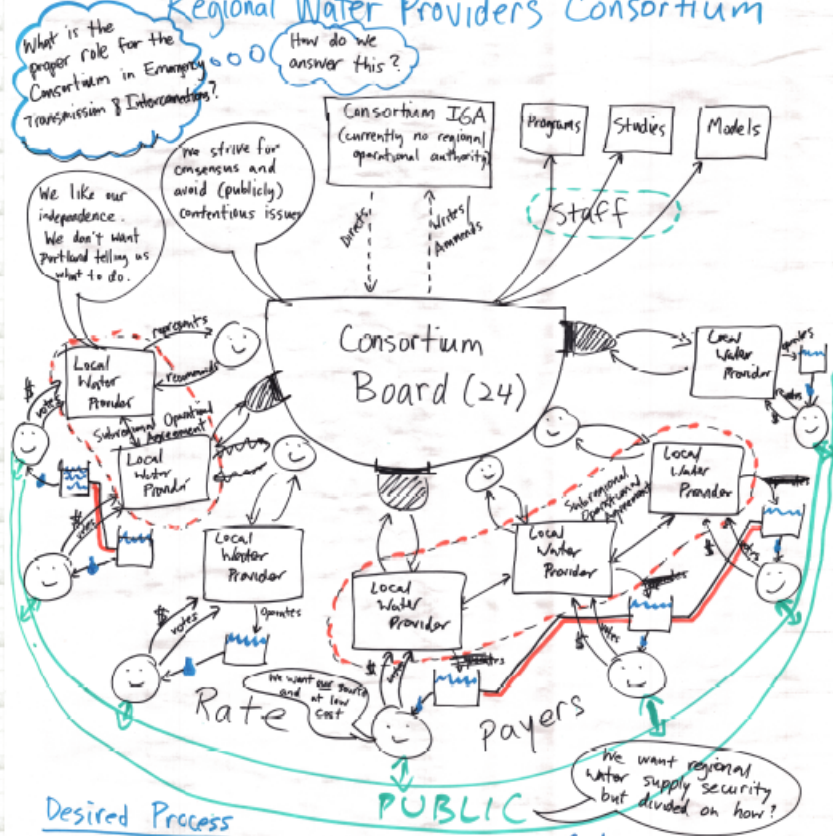 Regional Water Providers Consortium
What is the
proper role for the
Consortium in Emergency
Transmission & Interconnections?
How do we
answer this?
Consortium IGA
(currently no regional
operational authority)
Programs
Studies
Models
Staff
We strive for
consensus and
avoid (publicly)
contentious issues
We like our
independence.
We don't want
Portland telling us
what to do.
Directs
Writes/
Ammends
Consortium
Board (24)
represents
recommends
Local
Water
Provider
$
votes
Subregional Operational
Agreement
Local
Water
Provider
$
votes
Local
Water
Provider
operates
$
votes
Local
Water
Provider
$
Local
Water
Provider
Subregional
Operational
Agreement
Local
Water
Provider
$
votes
Local
Water
Provider
$
votes
Local
Water
Provider
operates
$
votes
Rate
Payers
We want our source
and at low
cost
PUBLIC
We want regional
water supply security
but divided on how?
Desired Process